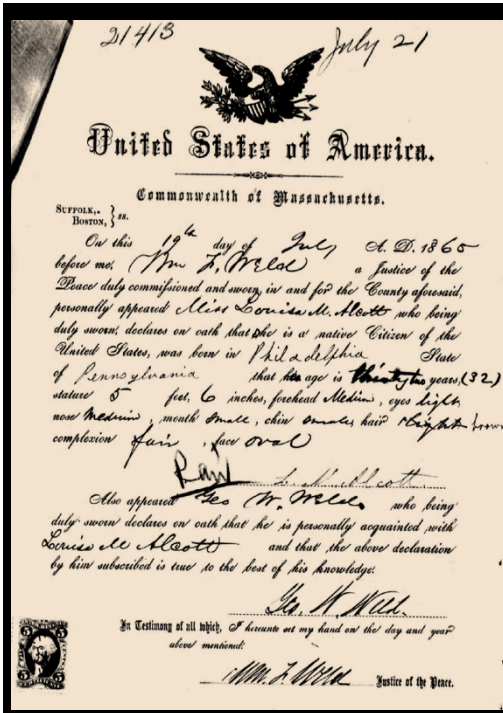 21413
July 21
United States of America.
Commonwealth of Massachusetts.
SUFFOLK,
BOSTON, } SS.
On this 19th day of July A. D. 1865
before me, Wm F. Weld a Justice of the
Peace duly commissioned and sworn, in and for the County aforesaid,
personally appeared Miss Louisa M. Alcott who being
duly sworn, declares on oath that she is a native Citizen of the
United States, was born in Philadelphia State
of Pennsylvania that her age is thirty two years, (32)
stature 5 feet, 6 inches, forehead Medium, eyes light,
nose Medium, mouth small, chin small, hair light brown
complexion fair, face oval
L. M. Alcott
Also appeared Geo W. Weld who being
duly sworn declares on oath that he is personally acquainted with
Louisa M Alcott and that the above declaration
by him subscribed is true to the best of his knowledge.
Geo. W. Weld.
In Testimony of all which, I hereunto set my hand on the day and year
above mentioned:
Wm. F. Weld Justice of the Peace.
5 5